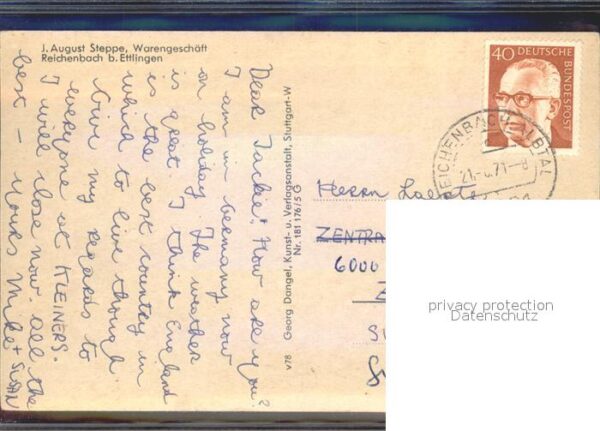 J. August Steppe, Warengeschäft
Reichenbach b. Ettlingen
Dear Jackie + How are you?
I am in Germany now
on holiday The weather
is great. I think England
is the best country in
which to live though
Give my regards to
everyone at KLEINERS.
I will close now. all the
best - yours Mike + SUSAN
V78 Georg Dangel, Kunst- u. Verlagsanstalt, Stuttgart-W
Nr. 181 176/5 G
40
DEUTSCHE
BUNDESPOST
REICHENBACH ALBTAL
Herrn
ZENTRA
6000
privacy protection
Datenschutz